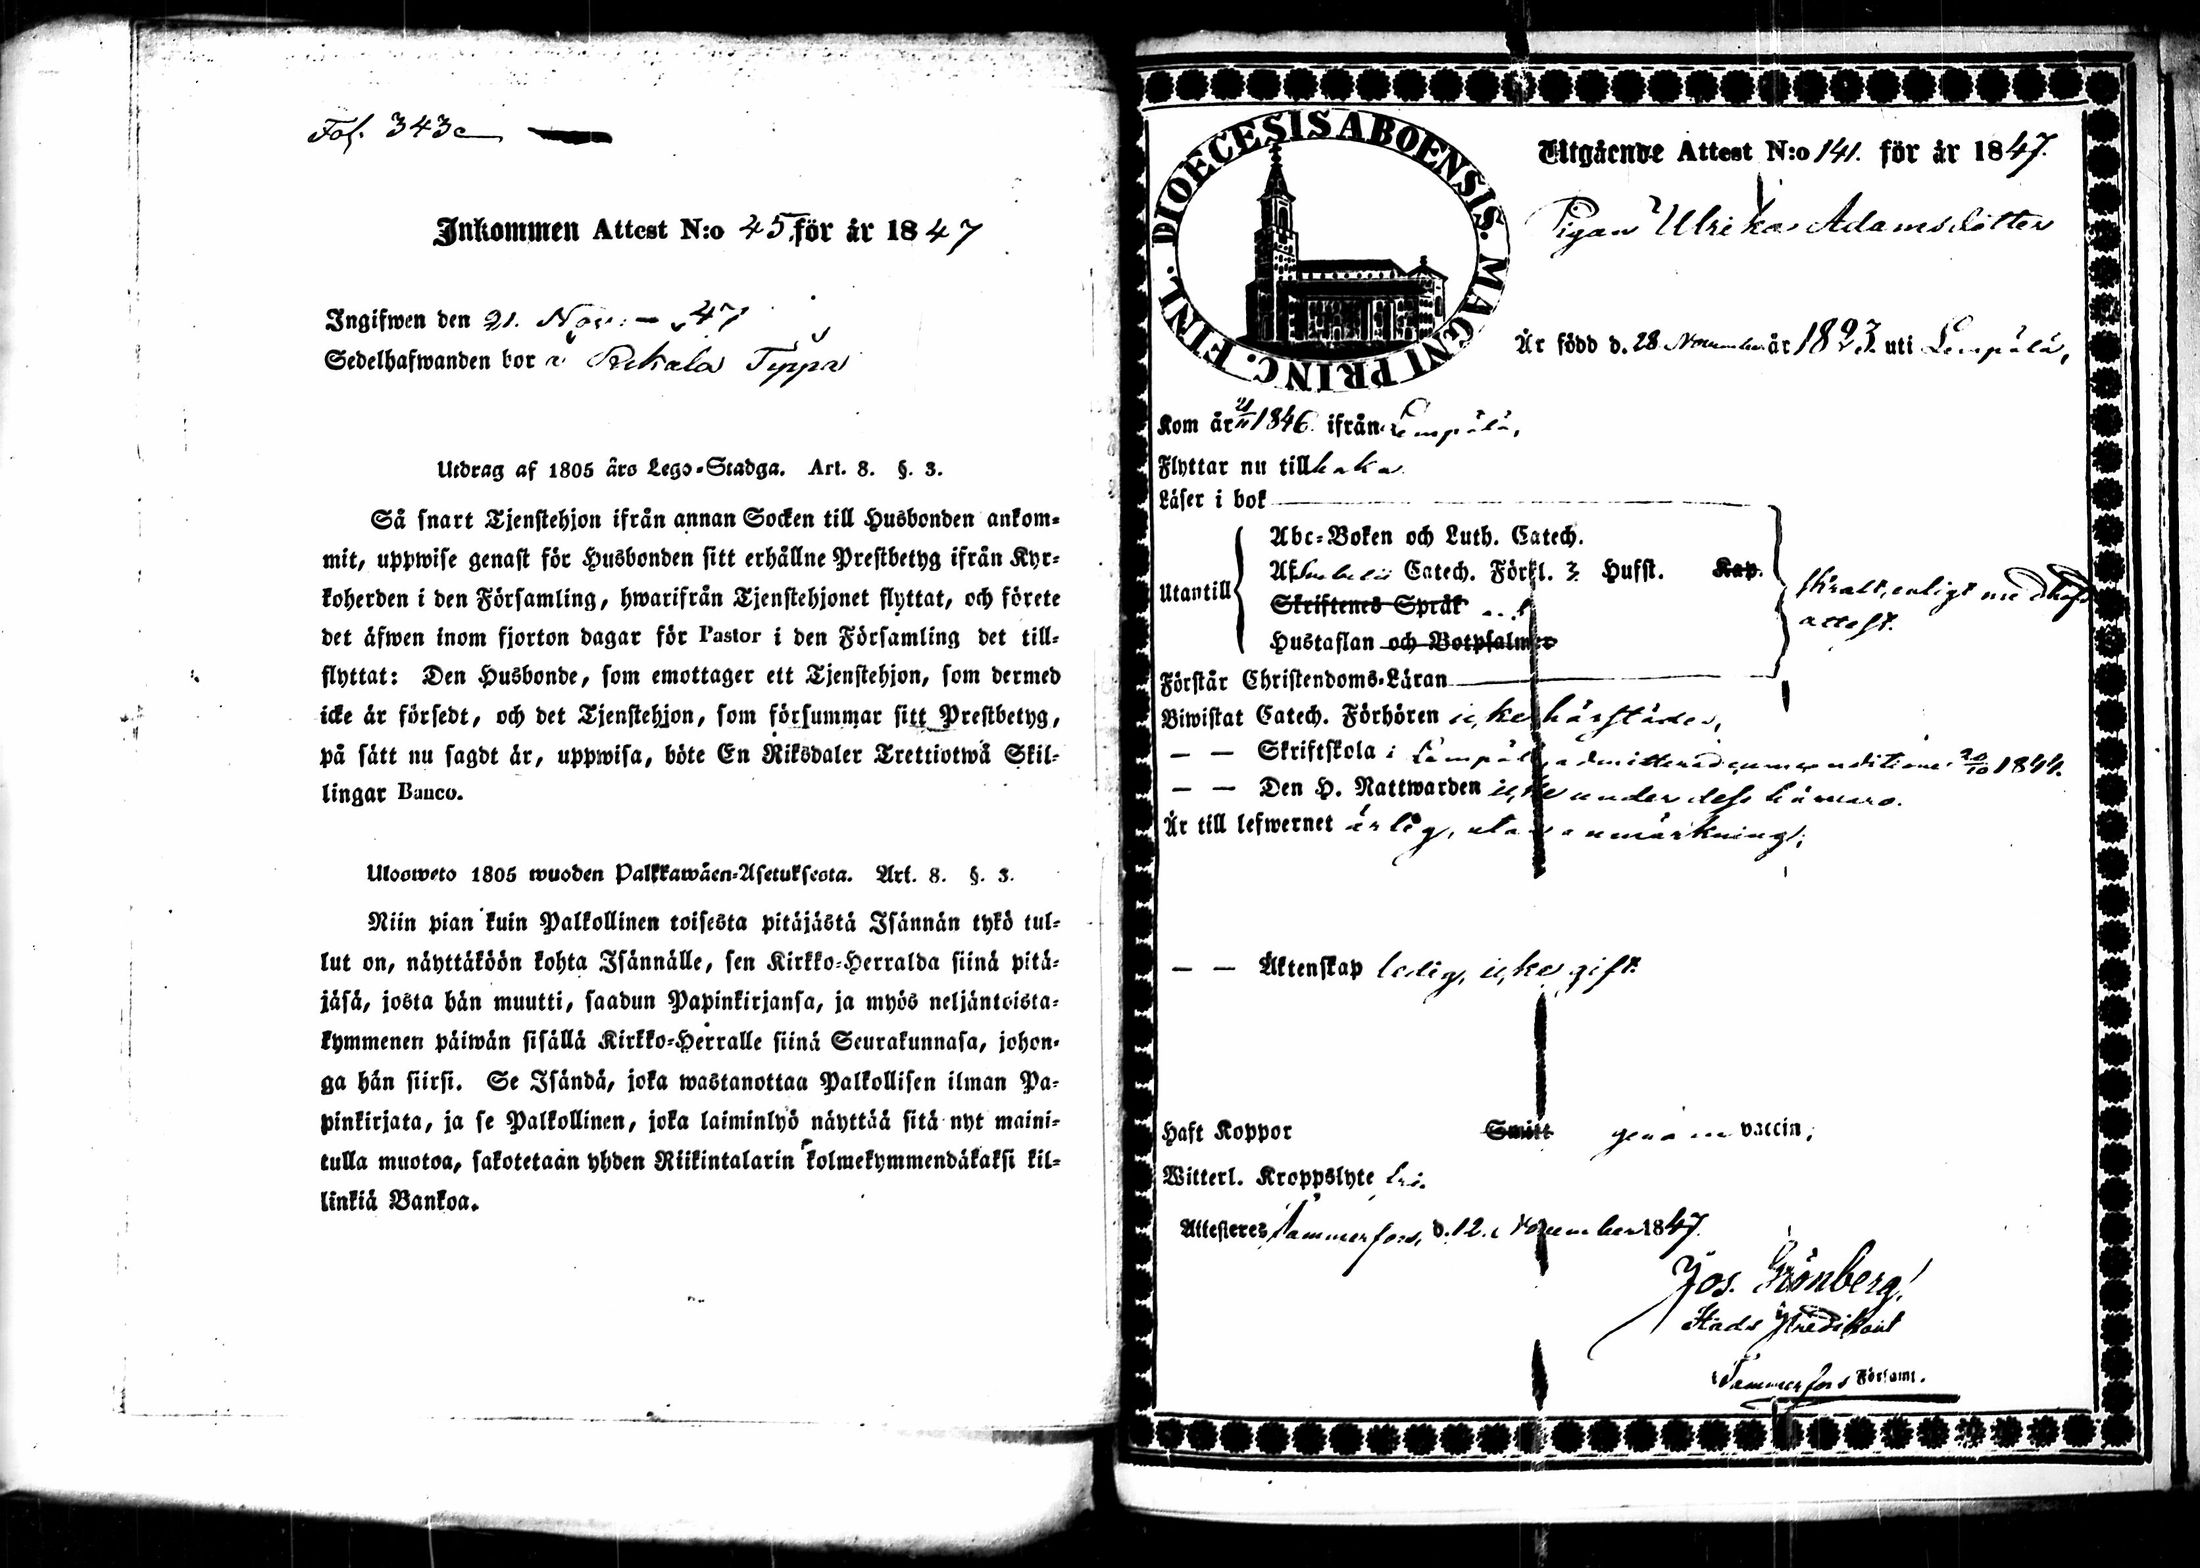 Fol. 343
Inkommen Attest N:o 45 för år 1847
Ingifwen den 21. Nov: 47
Sedelhafwanden bor å Pekala Typpä
Utdrag af 1805 års Lego-Stadga. Art. 8. §. 3.
Så snart Tjenstehjon ifrån annan Socken till Husbonden ankom-
mit, uppwise genast för Husbonden sitt erhållne Prestbetyg ifrån Kyr-
koherden i den Församling, hwarifrån Tjenstehjonet flyttat, och förete
det äfwen inom fjorton dagar för Pastor i den Församling det till-
flyttat: Den Husbonde, som emottager ett Tjenstehjon, som dermed
icke är försedt, och det Tjenstehjon, som försummar sitt Prestbetyg,
på sätt nu sagdt är, uppwisa, böte En Riksdaler Trettiotwå Skil-
lingar Banco.
Ulosweto 1805 wuoden Palkkawäen-Asetuksesta. Art. 8. §. 3.
Niin pian kuin Palkollinen toisesta pitäjästä Isännän tykö tul-
lut on, näyttäköön kohta Isännälle, sen Kirkko-Herralda siinä pitä-
jäsä, josta hän muutti, saadun Papinkirjansa, ja myös neljäntoista-
kymmenen päiwän sisällä Kirkko-Herralle siinä Seurakunnasa, johon-
ga hän siirsi. Se Isändä, joka wastanottaa Palkollisen ilman Pa-
pinkirjata, ja se Palkollinen, joka laiminlyö näyttää sitä nyt maini-
tulla muotoa, sakotetaan yhden Riikintalarin kolmekymmendäkaksi kil-
linkiä Bankoa.
DIOECESIS ABOENSIS. MAGNI PRINC. FINL.
Utgående Attest N:o 141. för år 1847.
Pigan Ulrika Adamsdotter
Är född d. 28 November år 1823. uti Lempälä,
Kom år 21/11 1846. ifrån Lempälä,
Flyttar nu till
Läser i bok
Utantill
Abc-Boken och Luth. Catech.
Af Catech. Förkl. 3 Husst. Kap.
Skriftenes Språk
Hustaflan och Botpsalmer
attest.
Förstår Christendoms-Läran
Biwistat Catech. Förhören icke härstädes,
— — Skriftskola i Lempälä, admitterad 20/10 1844.
— — Den H. Nattwarden icke under dess härwaro.
Är till lefwernet ärlig, utan anmärkning;
— — Äktenskap ledig, icke gift.
Haft Koppor Smått genom vaccin,
Witterl. Kroppslyte fri.
Attesteres Tammerfors, d. 12. November 1847.
Jos. Grönberg,
Stads Predikant
Tammerfors Församl.